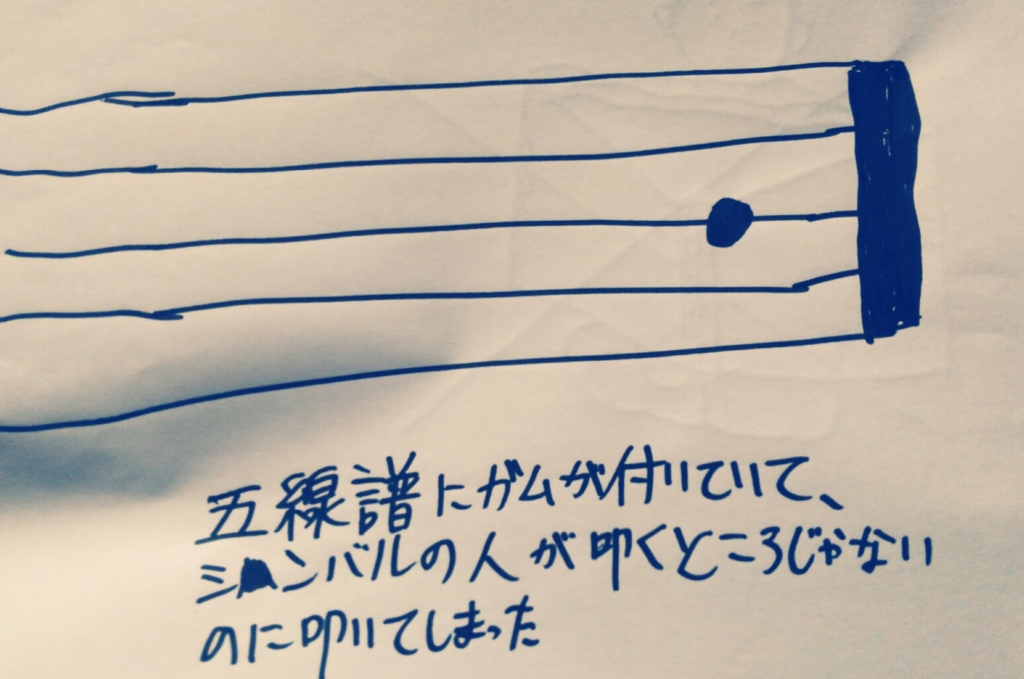 五線譜にガムが付いていて、
シンバルの人が叩くところじゃない
のに叩いてしまった